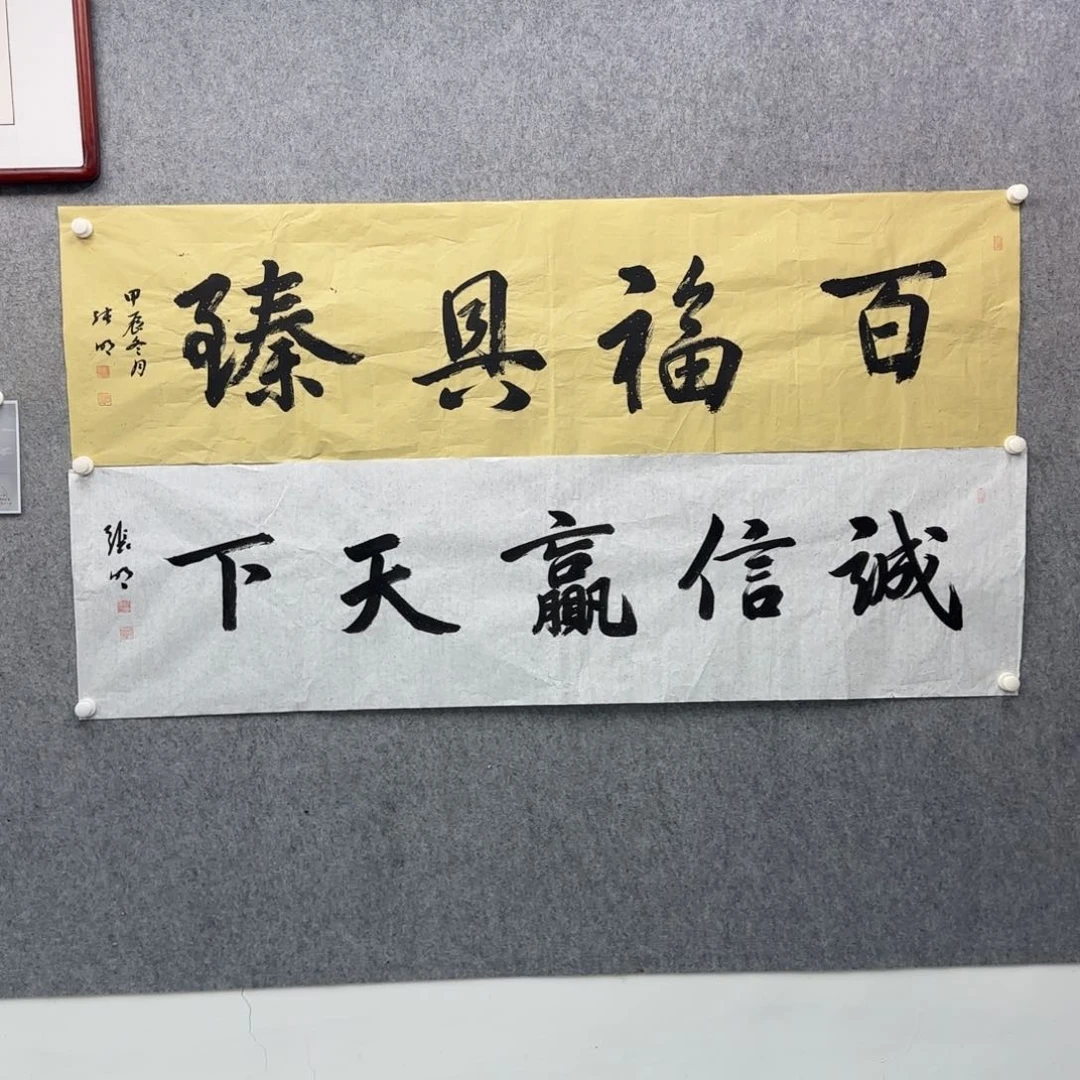 百福具臻
甲辰冬月
张明
誠信贏天下
張明